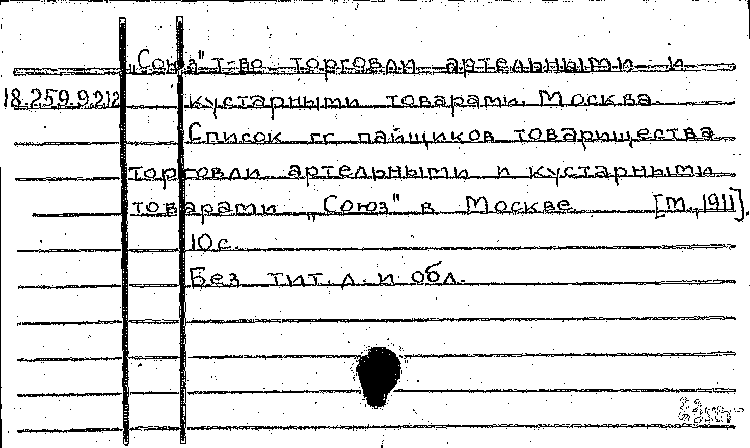 „Союз" т-во торговли артельными и
18.259.9.212 кустарными товарами. Москва.
Список гг. пайщиков товарищества
торговли артельными и кустарными
товарами „Союз" в Москве [М., 1911].
10 с.
Без тит. л. и обл.